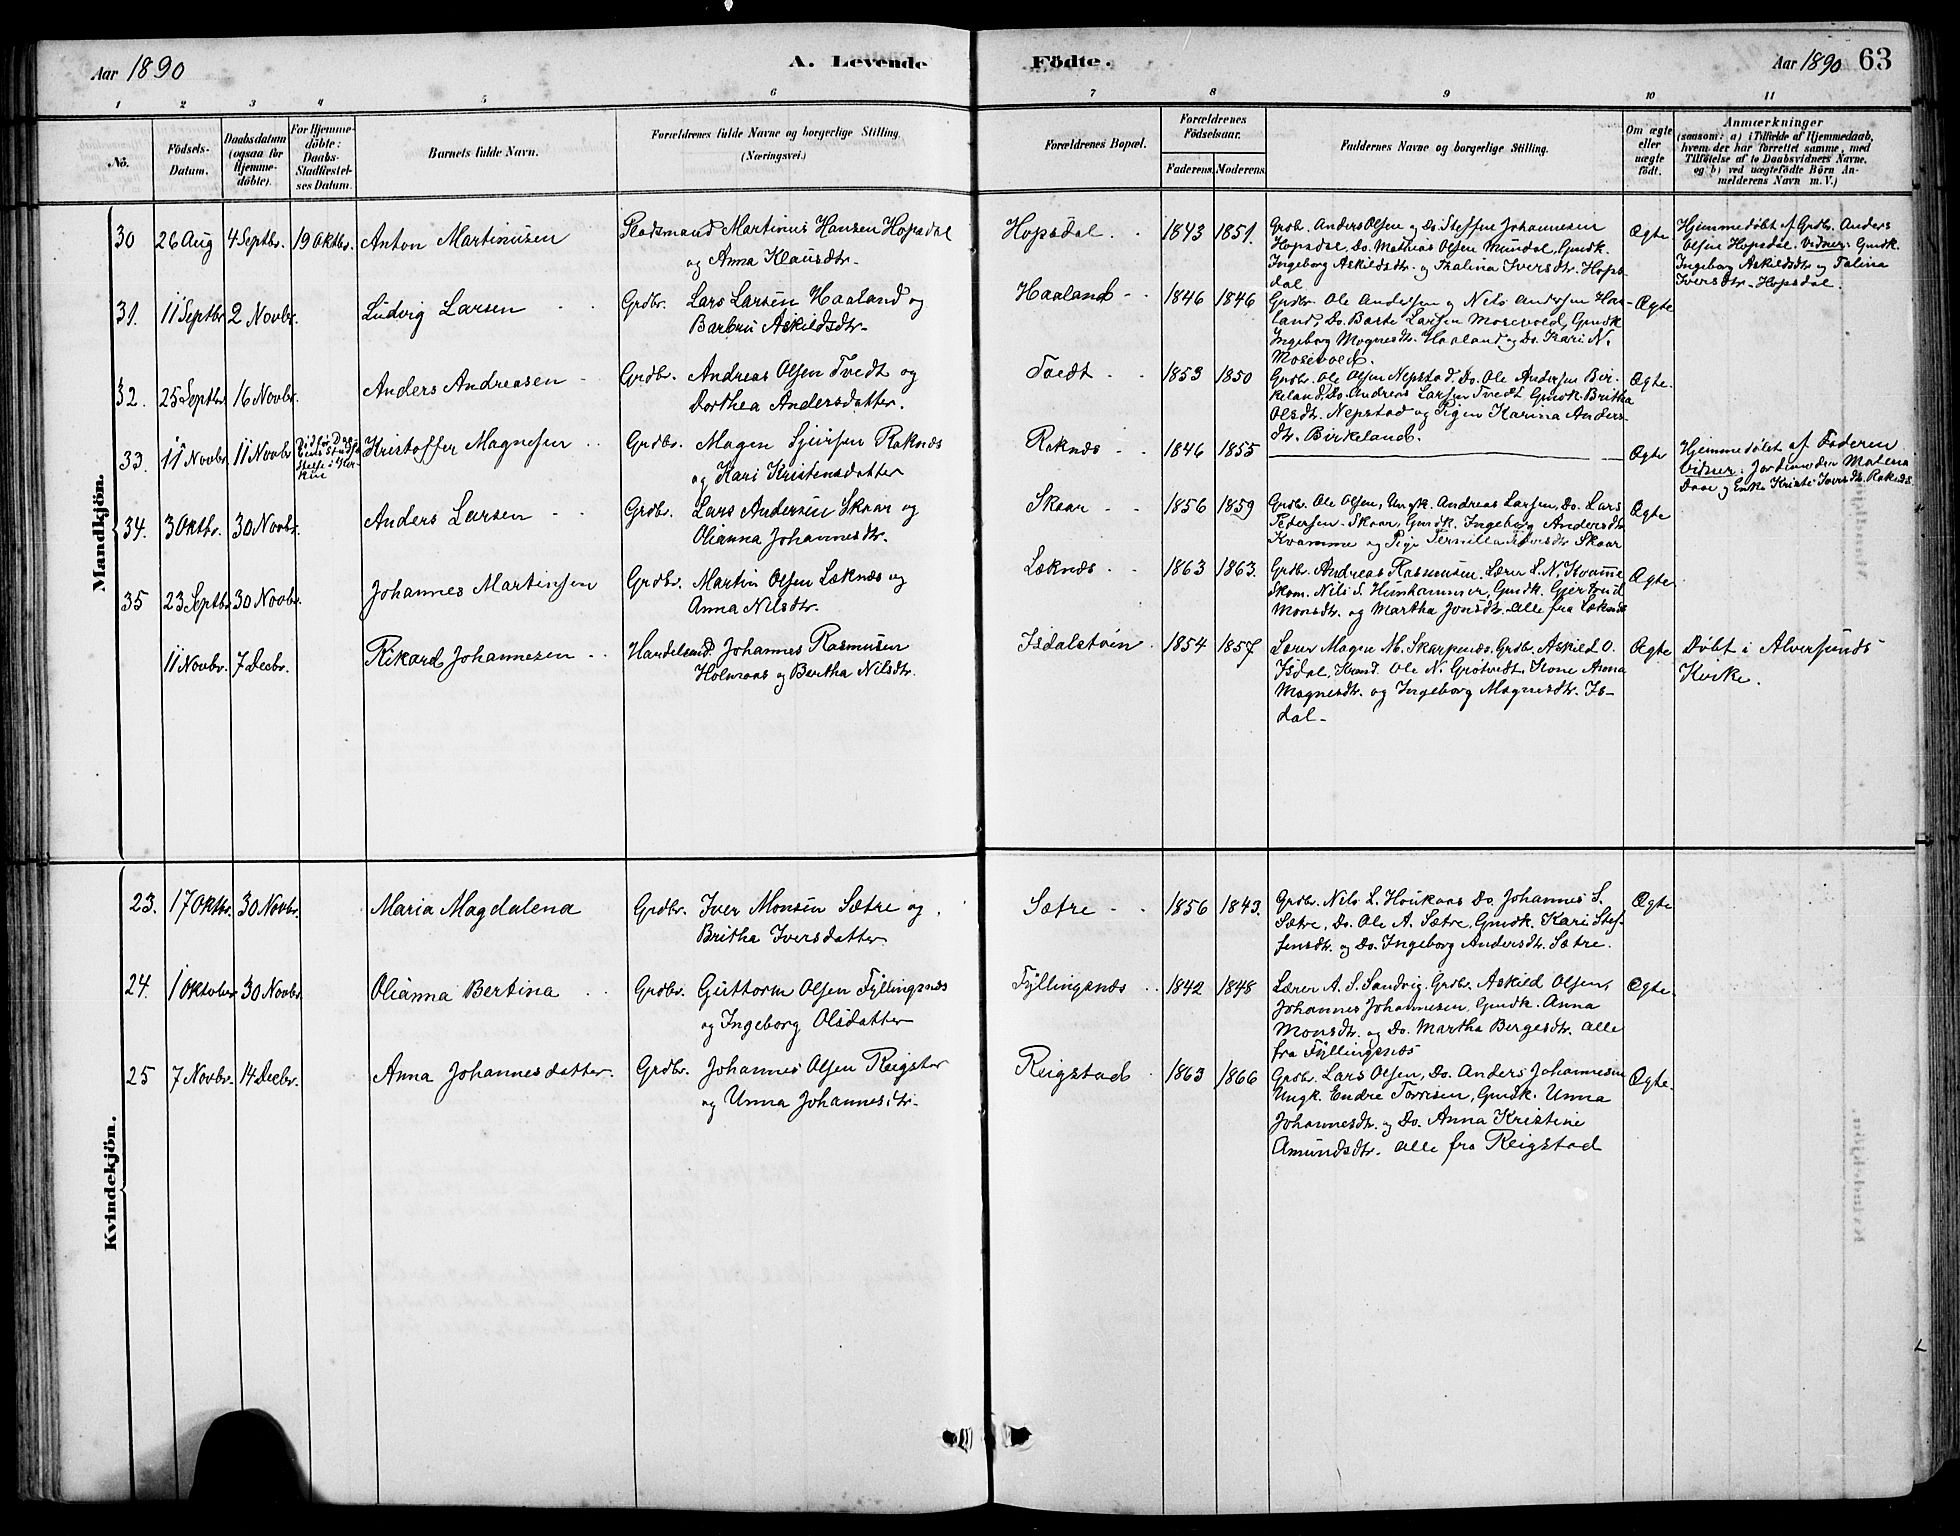 Aar 1890
A. Levende
Födte.
Aar 1890
63
1 2 3 4 5 6 7 8 9 10 11
No.
Födsels-Datum.
Daabsdatum (ogsaa for Hjemme-döbte).
For Hjemme-döbte: Daabs-Stadfæstel-ses Datum.
Barnets fulde Navn.
Forældrenes fulde Navne og borgerlige Stilling
(Næringsvei.)
Forældrenes Bopæl.
Forældrenes Födselsaar.
Faderens. Moderens.
Faddernes Navne og borgerlige Stilling.
Om ægte eller uægte födt.
Anmærkninger
(saasom: a) i Tilfælde af Hjemmedaab, hvem der har forrettet samme, med Tilföielse af to Daabsvidners Navne, og b) ved uægtefödte Börn Anmelderens Navn m. V.)
Mandkjön.
30 26 Aug 4 Septbr. 19 Oktbr. Anton Martinusen
Pladsmand Martinus Hansen Hopsdal
og Anna Klausdtr.
Hopsdal. 1843 1851.
Grdbr. Anders Olsen og Do. Steffen Johannesen
Hopsdal, Do. Mathias Olsen Mundal, Gmdk.
Ingeborg Askildsdtr. og Thalina Iversdtr. Hops-
dal
Ægte
Hjemmedøbt af Grdbr. Anders
Olsen Hopsdal. Vidner: Gmdk
Ingeborg Askildsdtr og Talina
Iversdtr. Hopsdal.
31. 11 Septbr 2 Novbr. Ludvig Larsen
Grdbr. Lars Larsen Haaland og
Barbru Askildsdtr.
Haaland 1846 1846
Grdbr. Ole Andersen og Nels Andersen Haa-
land, Do. Barte Larsen Mosevold, Gmdk
Ingeborg Mognesdtr. Haaland og Do. Kari N.
Mosevold.
Ægte
32. 25 Septbr 16 Novbr. Anders Andreasen
Grdbr. Andreas Olsen Tvedt og
Dorthea Andersdatter.
Tvedt 1853 1850
Grdbr. Ole Olsen Nepstad, Do. Ole Andersen Bir-
keland, Do. Andreas Larsen Tvedt Gmdk. Britha
Olsdt. Nepstad og Pigen Karina Anders-
dtr. Birkeland.
Ægte.
33. 11 Novbr. 11 Novbr Kristoffer Magnesen
Grdbr. Magen Sjursen Raknæs
og Kari Kristensdatter
Raknæs 1846 1855
Ægte
Hjemmedøbt af Faderen
Vidner: Jordmoderen Matena
Daae og Enke Kristi Iversdtr. Raknæs.
34. 3 Oktbr. 30 Novbr. Anders Larsen
Grdbr. Lars Andersen Skaar og
Olianna Johannesdtr.
Skaar 1856 1859
Grdbr. Ole Olsen, Ungk. Andreas Larsen, Do. Lars
Pedersen Skaar, Gmdk. Ingeborg Andersdtr
Kvamme og Pige Pernilla Iversdtr Skaar
Ægte
35 23 Septbr 30 Novbr. Johannes Martinsen
Grdbr. Martin Olsen Læknæs og
Anna Nilsdtr.
Læknæs 1863 1863.
Grdbr. Andreas Rasmusen. Lærer L. N. Kvamme
Skom. Nils S. Hunhammer, Gmdk. Gjertrud
Monsdtr. og Martha Jonsdtr. Alle fra Læknæs
Ægte
11 Novbr. 7 Decbr. Rikard Johannesen
Handelsmd. Johannes Rasmusen
Holmaas og Bertha Nilsdtr.
Isdalstøen 1854 1857
Lærer Magen M. Skarpenæs, Grdbr. Askild O.
Isdal, Krmd. Ole N. Grøtvedt, Kone Anna
Magnesdtr. og Ingeborg Magnesdtr. Is-
dal.
Ægte
Døbt i Alversunds
Kirke.
Kvindekjön.
23. 17 Oktbr. 30 Novbr. Maria Magdalena
Grdbr. Iver Monsen Sætre og
Britha Iversdatter
Sætre 1856 1843.
Grdbr. Nels L. Houkaas Do. Johannes S.
Sætre, Do. Ole A. Sætre, Gmdk. Kari Stef-
fensdtr. og Do. Ingeborg Andersdtr. Sætre.
Ægte
24. 1 Oktober 30 Novbr. Olianna Bertina
Grdbr. Guttorm Olsen Fyllingsnæs
og Ingeborg Olsdatter
Fyllingsnæs 1842 1848
Lærer A. S. Sandvig, Grdbr. Askild Olsen,
Johannes Johannesen, Gmdk. Anna
Monsdtr. og Do. Martha Bergesdtr. alle
fra Fyllingsnæs
Ægte.
25 7 Novbr. 14 Decbr. Anna Johannesdatter.
Grdbr. Johannes Olsen Reigstad
og Unna Johannesdtr.
Reigstad 1863 1866
Grdbr. Lars Olsen, Do. Anders Johannesen
Ungk. Endre Torrisen, Gmdk. Unna
Johannesdtr. og Do. Anna Kristine
Amundsdtr. alle fra Reigstad
Ægte.